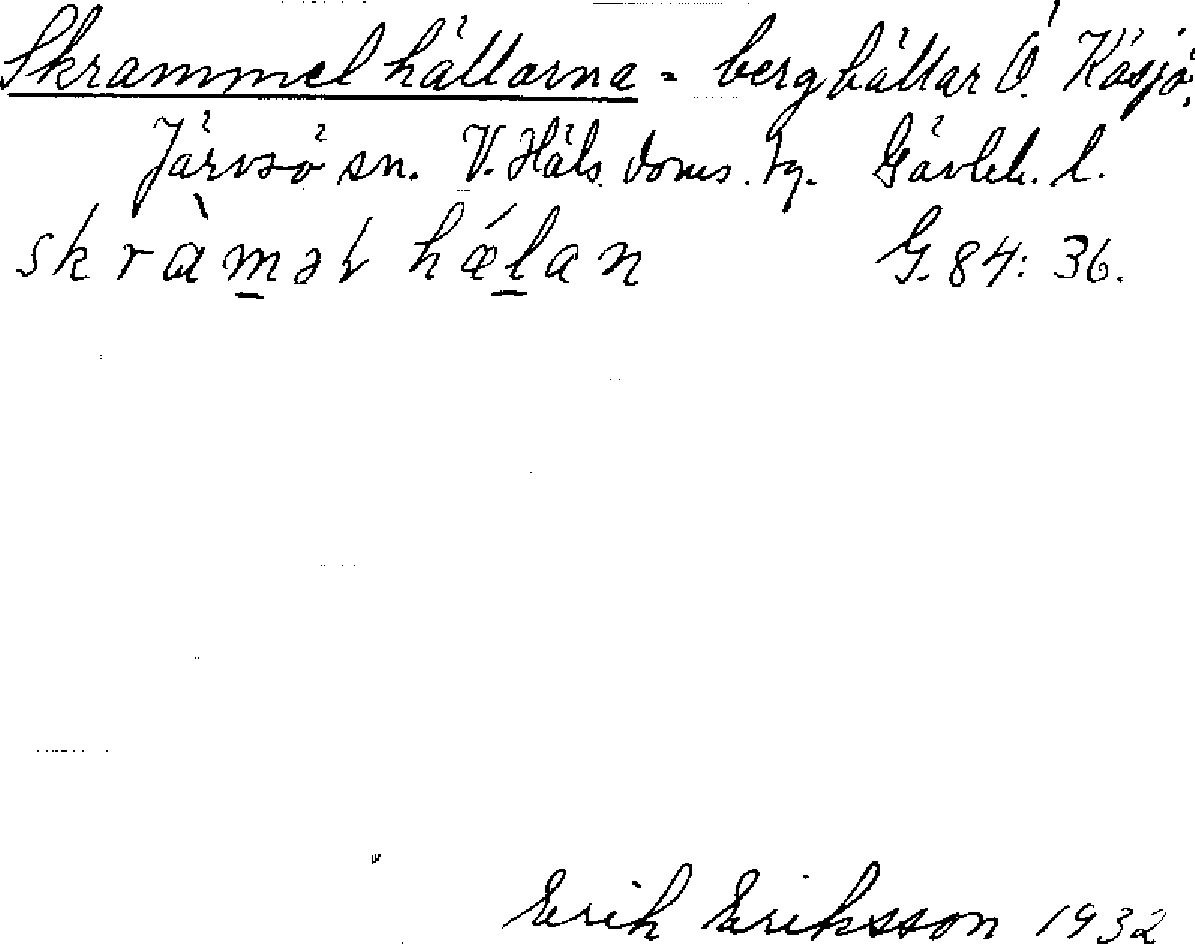 Skrammelhällarna - berghällar Ö. Kåsjö.
Järvsö sn. V. Häls. doms. tg. Gävleb. l.
skràməɫ hǽlan G. 84: 36.
Erik Eriksson 1932